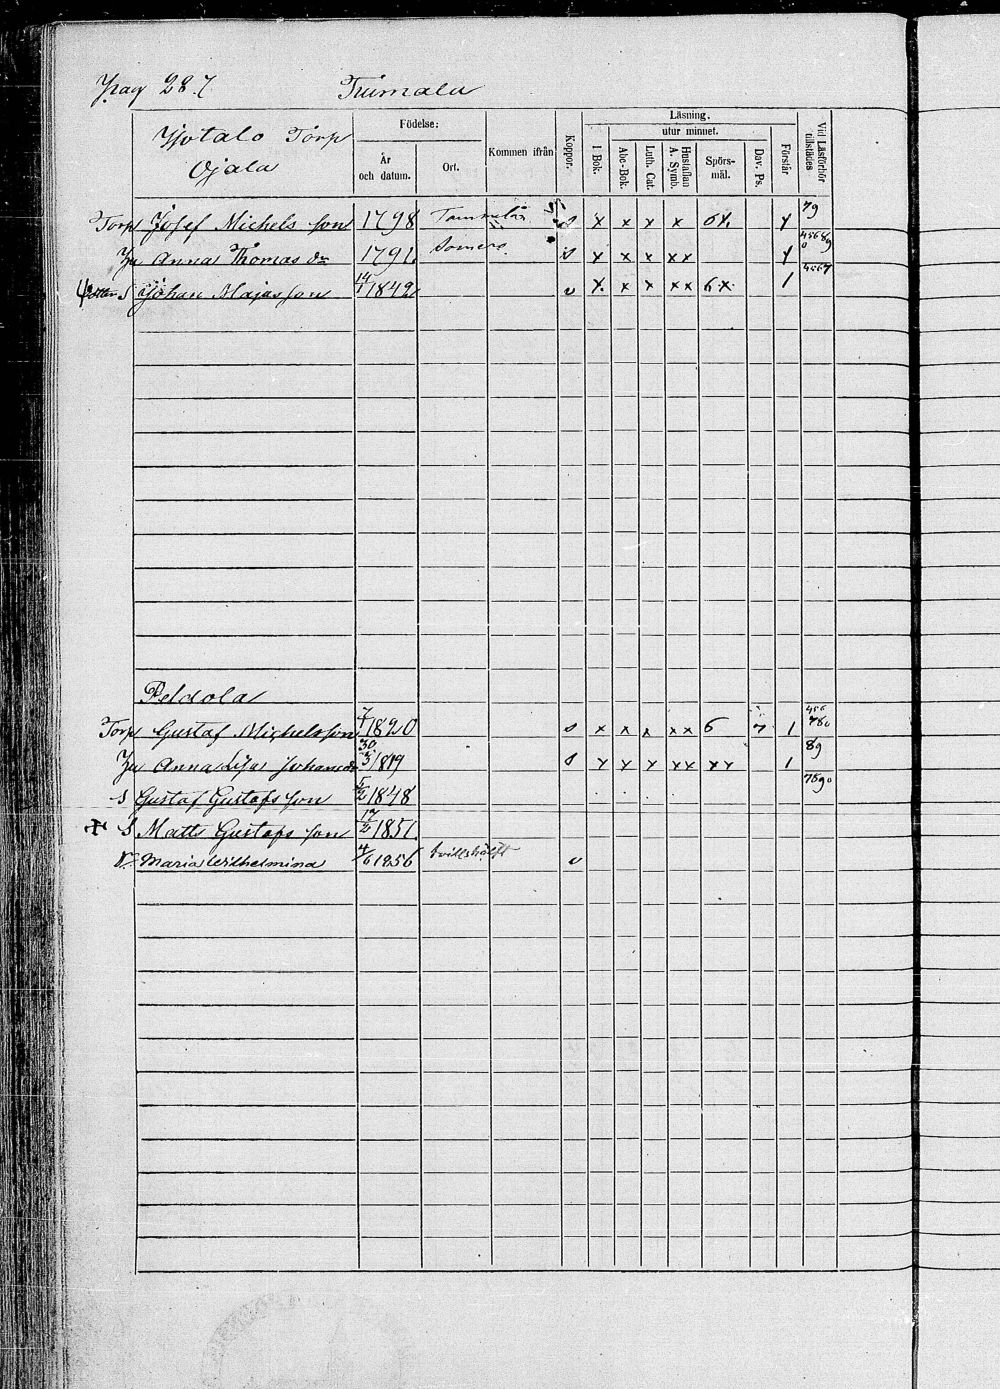 Pag 287 Trümala
Isotalo Torp
Ojala
Födelse:
År och datum.
Ort.
Kommen ifrån
Koppor.
Läsning.
I Bok.
utur minnet.
Abc-Bok.
Luth. Cat.
Hustaflan A. Symb.
Spörs-mål.
Dav. Ps.
Förstår
Vid Läsförhör tillstädes
Torp Josef Michels son 1798 Tammela s x x x x 6x x 79
Hu Anna Thomas dr 1791 Somero s x x x xx x 45689 0
S Johan Majas son 14/1 1842 v x x x xx 6x 1 4567
Peldola
Torp Gustaf Michelsson 7/7 1820 s x x x xx 6 7 1 456 780
Hu Anna Lisa Johans dr 30/3 1819 s x x x xx xx 1 89
S Gustaf Gustafs son 5/2 1848 7890
S Matts Gustafs son 17/2 1851
Dr Maria Wilhelmina 4/6 1856 tvillshälft v